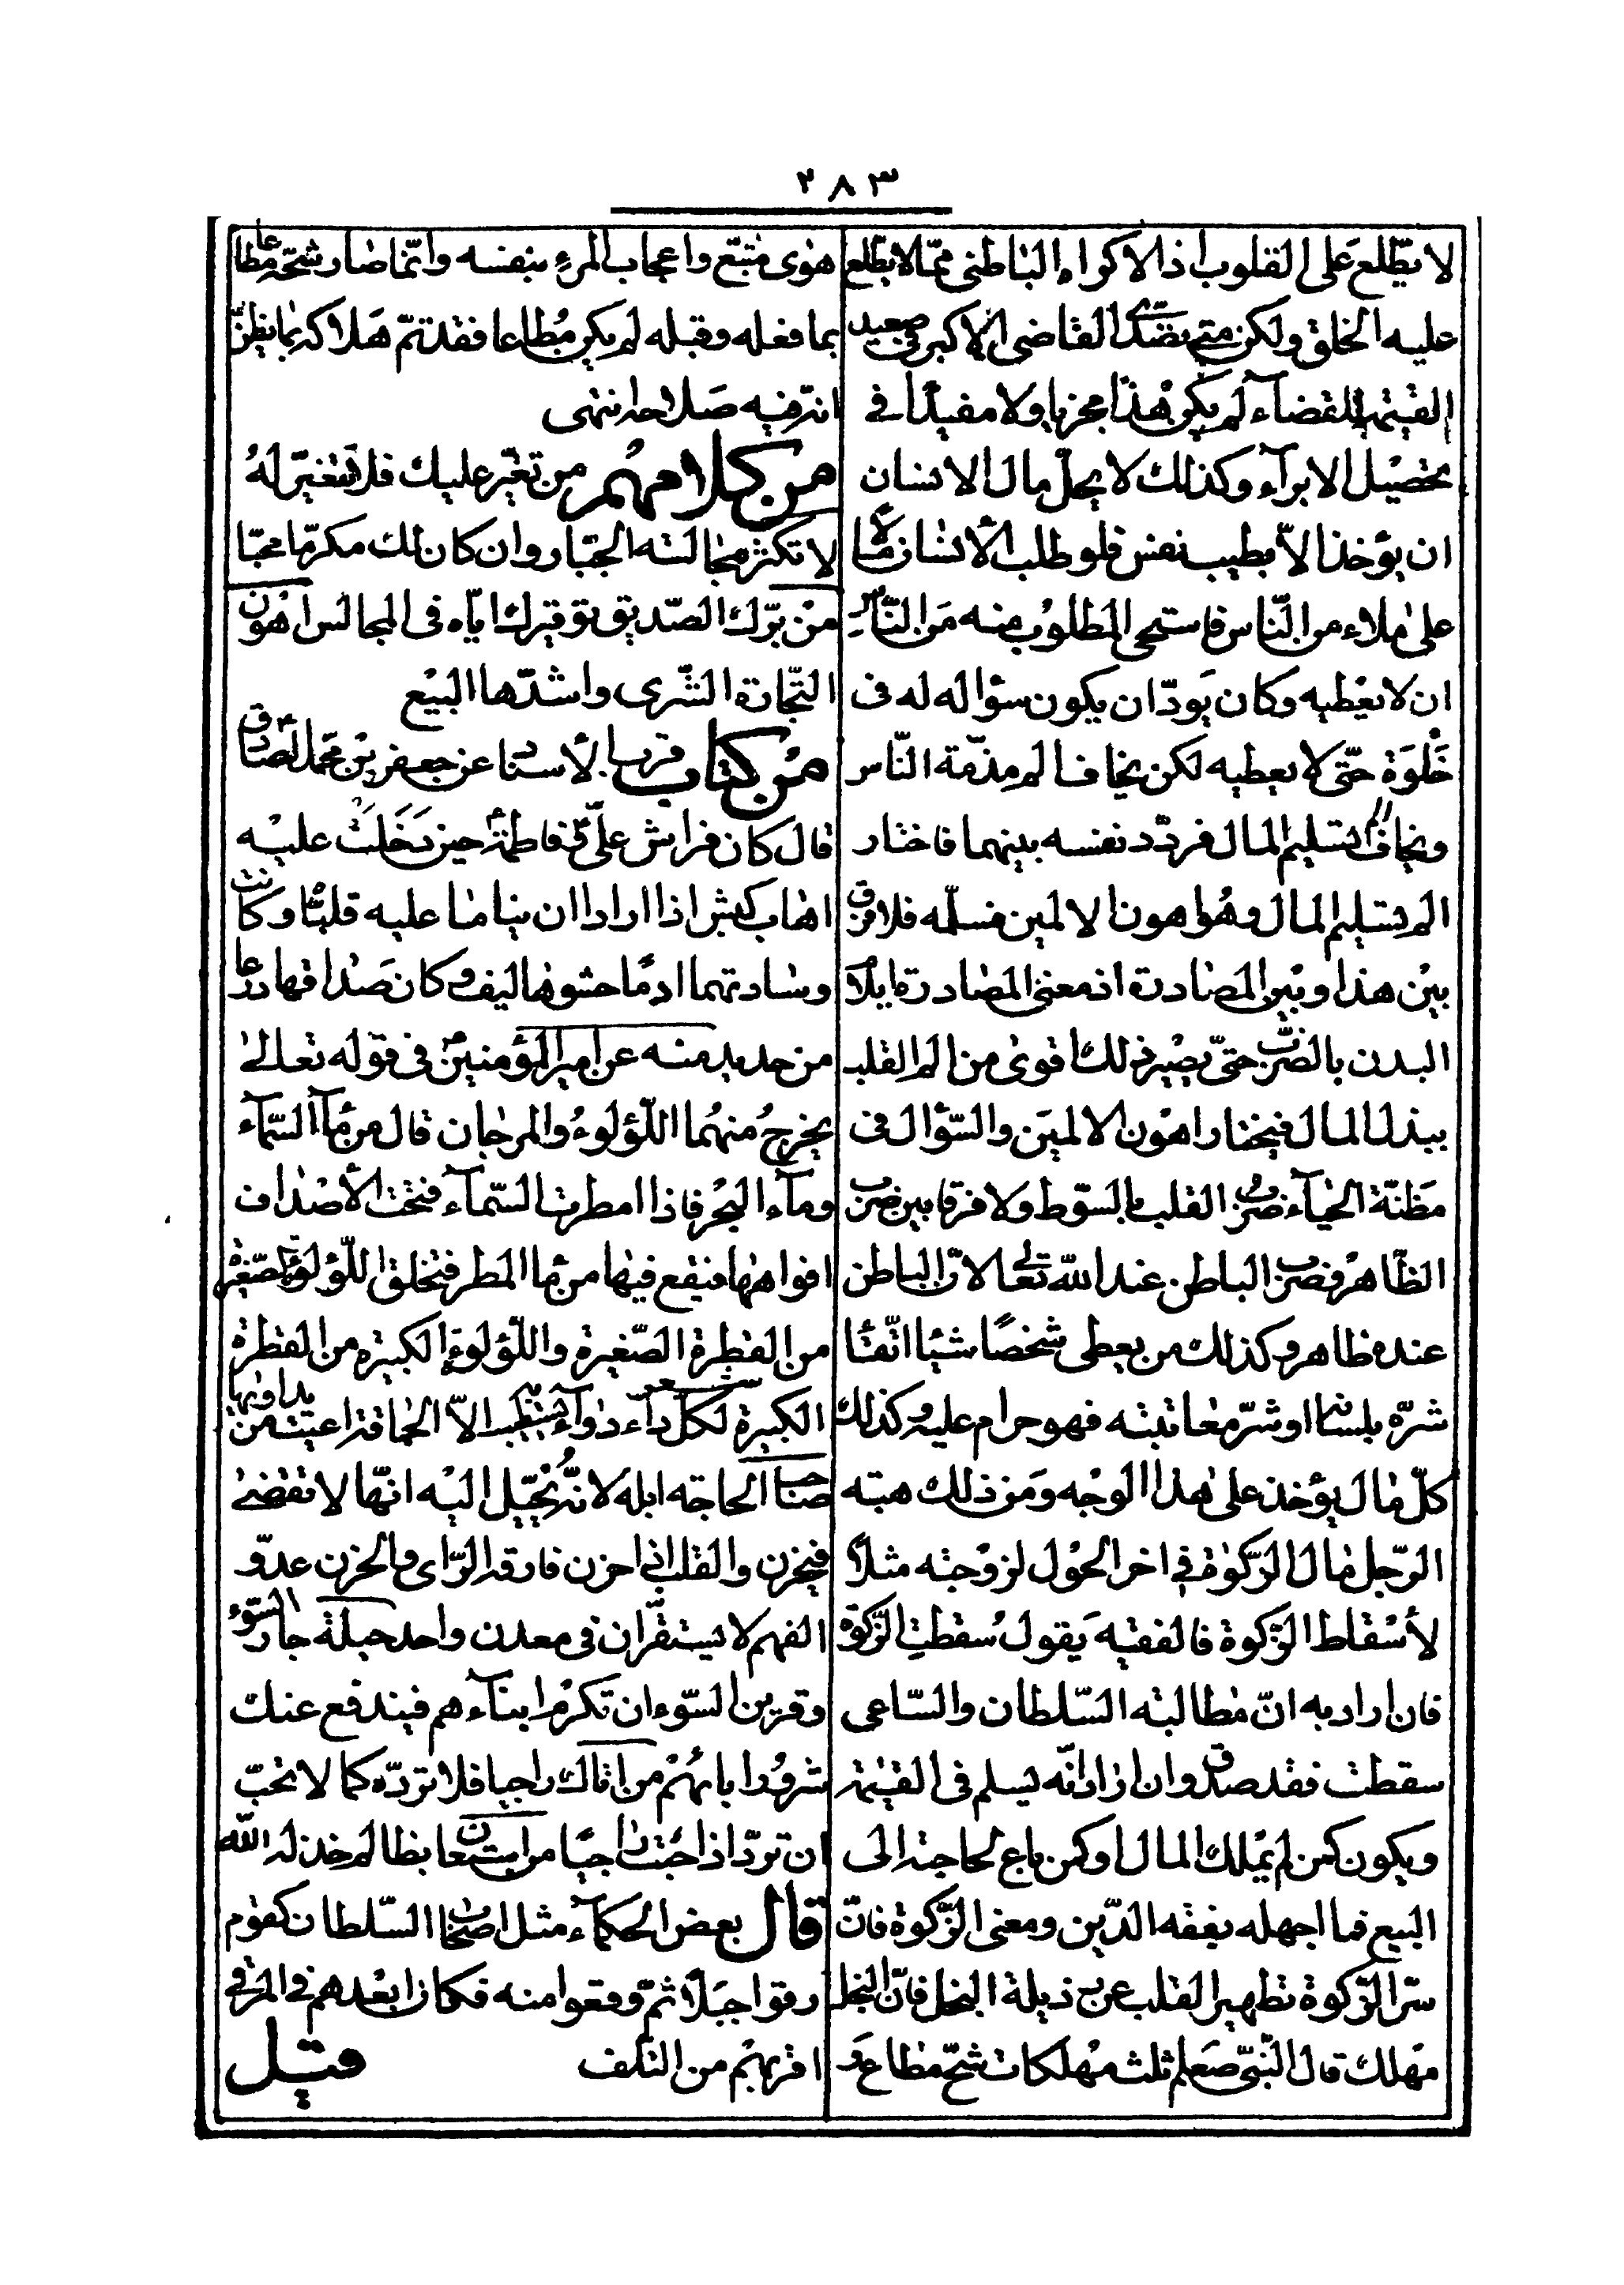 ٢٨٣
لا يطّلع على القلوب اذ الاكراه الباطنى ممّا لا يطّلع
عليه الخلق ولكن متى تصدّى القاضى الاكبر فى صعيد
القيٰمة للقضآء لم يكن هذا مجزيا ولا مفيدًا فى
تحصيل الابرآء وكذلك لا يحلّ مال الانسان
ان يؤخذ الاّ بطيب نفس فلو طلب الأنسان مالًا
على ملاء من النّاس فاستحى المطلوب منه مَن النّاسِ
ان لا يعطيه وكان يَودّ ان يكون سؤاله له فى
خَلْوَة حتّى لا يعطيه لكن يخاف الم مذمّة النّاس
ويخاف الم تسليم المال فردّد نفسه بينهما فاختار
الم تسليم المال وهو اهون الالمين فسلّمه فلا فرق
بيْن هذا وبيْن المصادرة اذ معنى المصادرة ايلام
البدن بالضرب حتىّ يصير ذلك اقوىٰ من الم القلب
ببذل المال فيختار اهون الالميَن والسّؤال فى
مَظنّة الحيآء ضرب القلب بالسّوط ولا فرق بين ضرب
الظّاهر وضرب الباطن عند اللّه تعالى لانّ الباطن
عنده ظاهر وكذلك من يعطى شخصًا شيئا اتّقآء
شرّه بلسانه او شرّ معاتبته فهو حرام عليه وكذلك
كلّ مال يؤخذ على هذا الوجه ومَن ذلك هبته
الرّجل مال الزّكوٰة فى اخر الحوْل لزوْجته مثلاً
لأسْقاط الزّكوة فالفقيه يَقول سُقطتِ الزّكوة
فان اراد به انّ مطالبته السّلطان والسّاعى
سقطت فقد صدق وان اراد انّه يسلم فى القيٰمة
ويكون كمن لم يمْلك المال او كمن باع لحاجته الى
البيع فما اجهله بفقه الدّين ومعنى الزّكوة فانّ
سّر الزّكوة تطهير القلب عن رذيلة البخل فانّ البخل
مهلك قال النّبىّ صعلم ثلث مهْلكات شحّ مطاع و
هوٰى متبّع واعجاب المرءِ بنفسه وانّما صار شحّه مطاعا
بما فعله وقبله لم يكن مُطاعا فقد تمّ هَلاكه بما يظنّ
انّه فيه صَلاحه انتهى
من كلام مهم من تغيّر عليك فلا تتغيّر لَهُ
لا تكثر مجالسته الجبّار وان كان لك مكرّما محبّا
منْ بّرك الصّديق توقيرك ايّاه فى المجالس اهْون
التّجارة الشّرى واشدّها البيْع
من كتاب قرب الأسناد عن جعفر بْن محمّد الصادق
قال كان فراش علّى وفاطمة حين دَخَلَتْ عليْه
اهاب كبش اذا ارادا ان يناما عليه قلبّاه وكانت
وسادتهما ادمًا حشوها ليف وكان صَداقها درعا
من حديد منه عن امير المؤمنين فى قوله تعالىٰ
يخرجُ منهُما اللّؤلوءُ والمرجان قال من مآء السّمآء
ومآء البحْر فاذا امطرت السّمآء فتحت الأصْداف
افواهها فيقع فيها من مآء المطر فتخلق اللّؤلوءة الصّغيْرة
من القطرة الصّغيرة واللّؤلوءة الكبيرة من القطرة
الكبيرة شعر لكلّ دآء دوآء يستطبّ به الاّ الحماقة اعيت من يداويها
صاحب الحاجته ابله لانّه يُخيّل اليْه انّها لا تقضىٰ
فيحزن والقلب اذا حزن فارقه الرّاى والحزن عدوّ
الفهم لا يستقّران فى معدن واحد حيلة جار السّوء
وقرين السّوء ان تكرمْ ابنآءهم فيندفع عنك
شرورُ ابائهُمْ من اتاك راجيا فلا تردّه كما لا تحبّ
ان تردّ اذا جئت راجيًا من استعان بظالم خذله اللّه
قال بعض الحكمآء مثل اصحاب السّلطان كقوم
رقوا جبَلًا ثمّ وقعوا منه فكان ابعْدهم فى المرقى
اقربهْم من التّلف
قيل